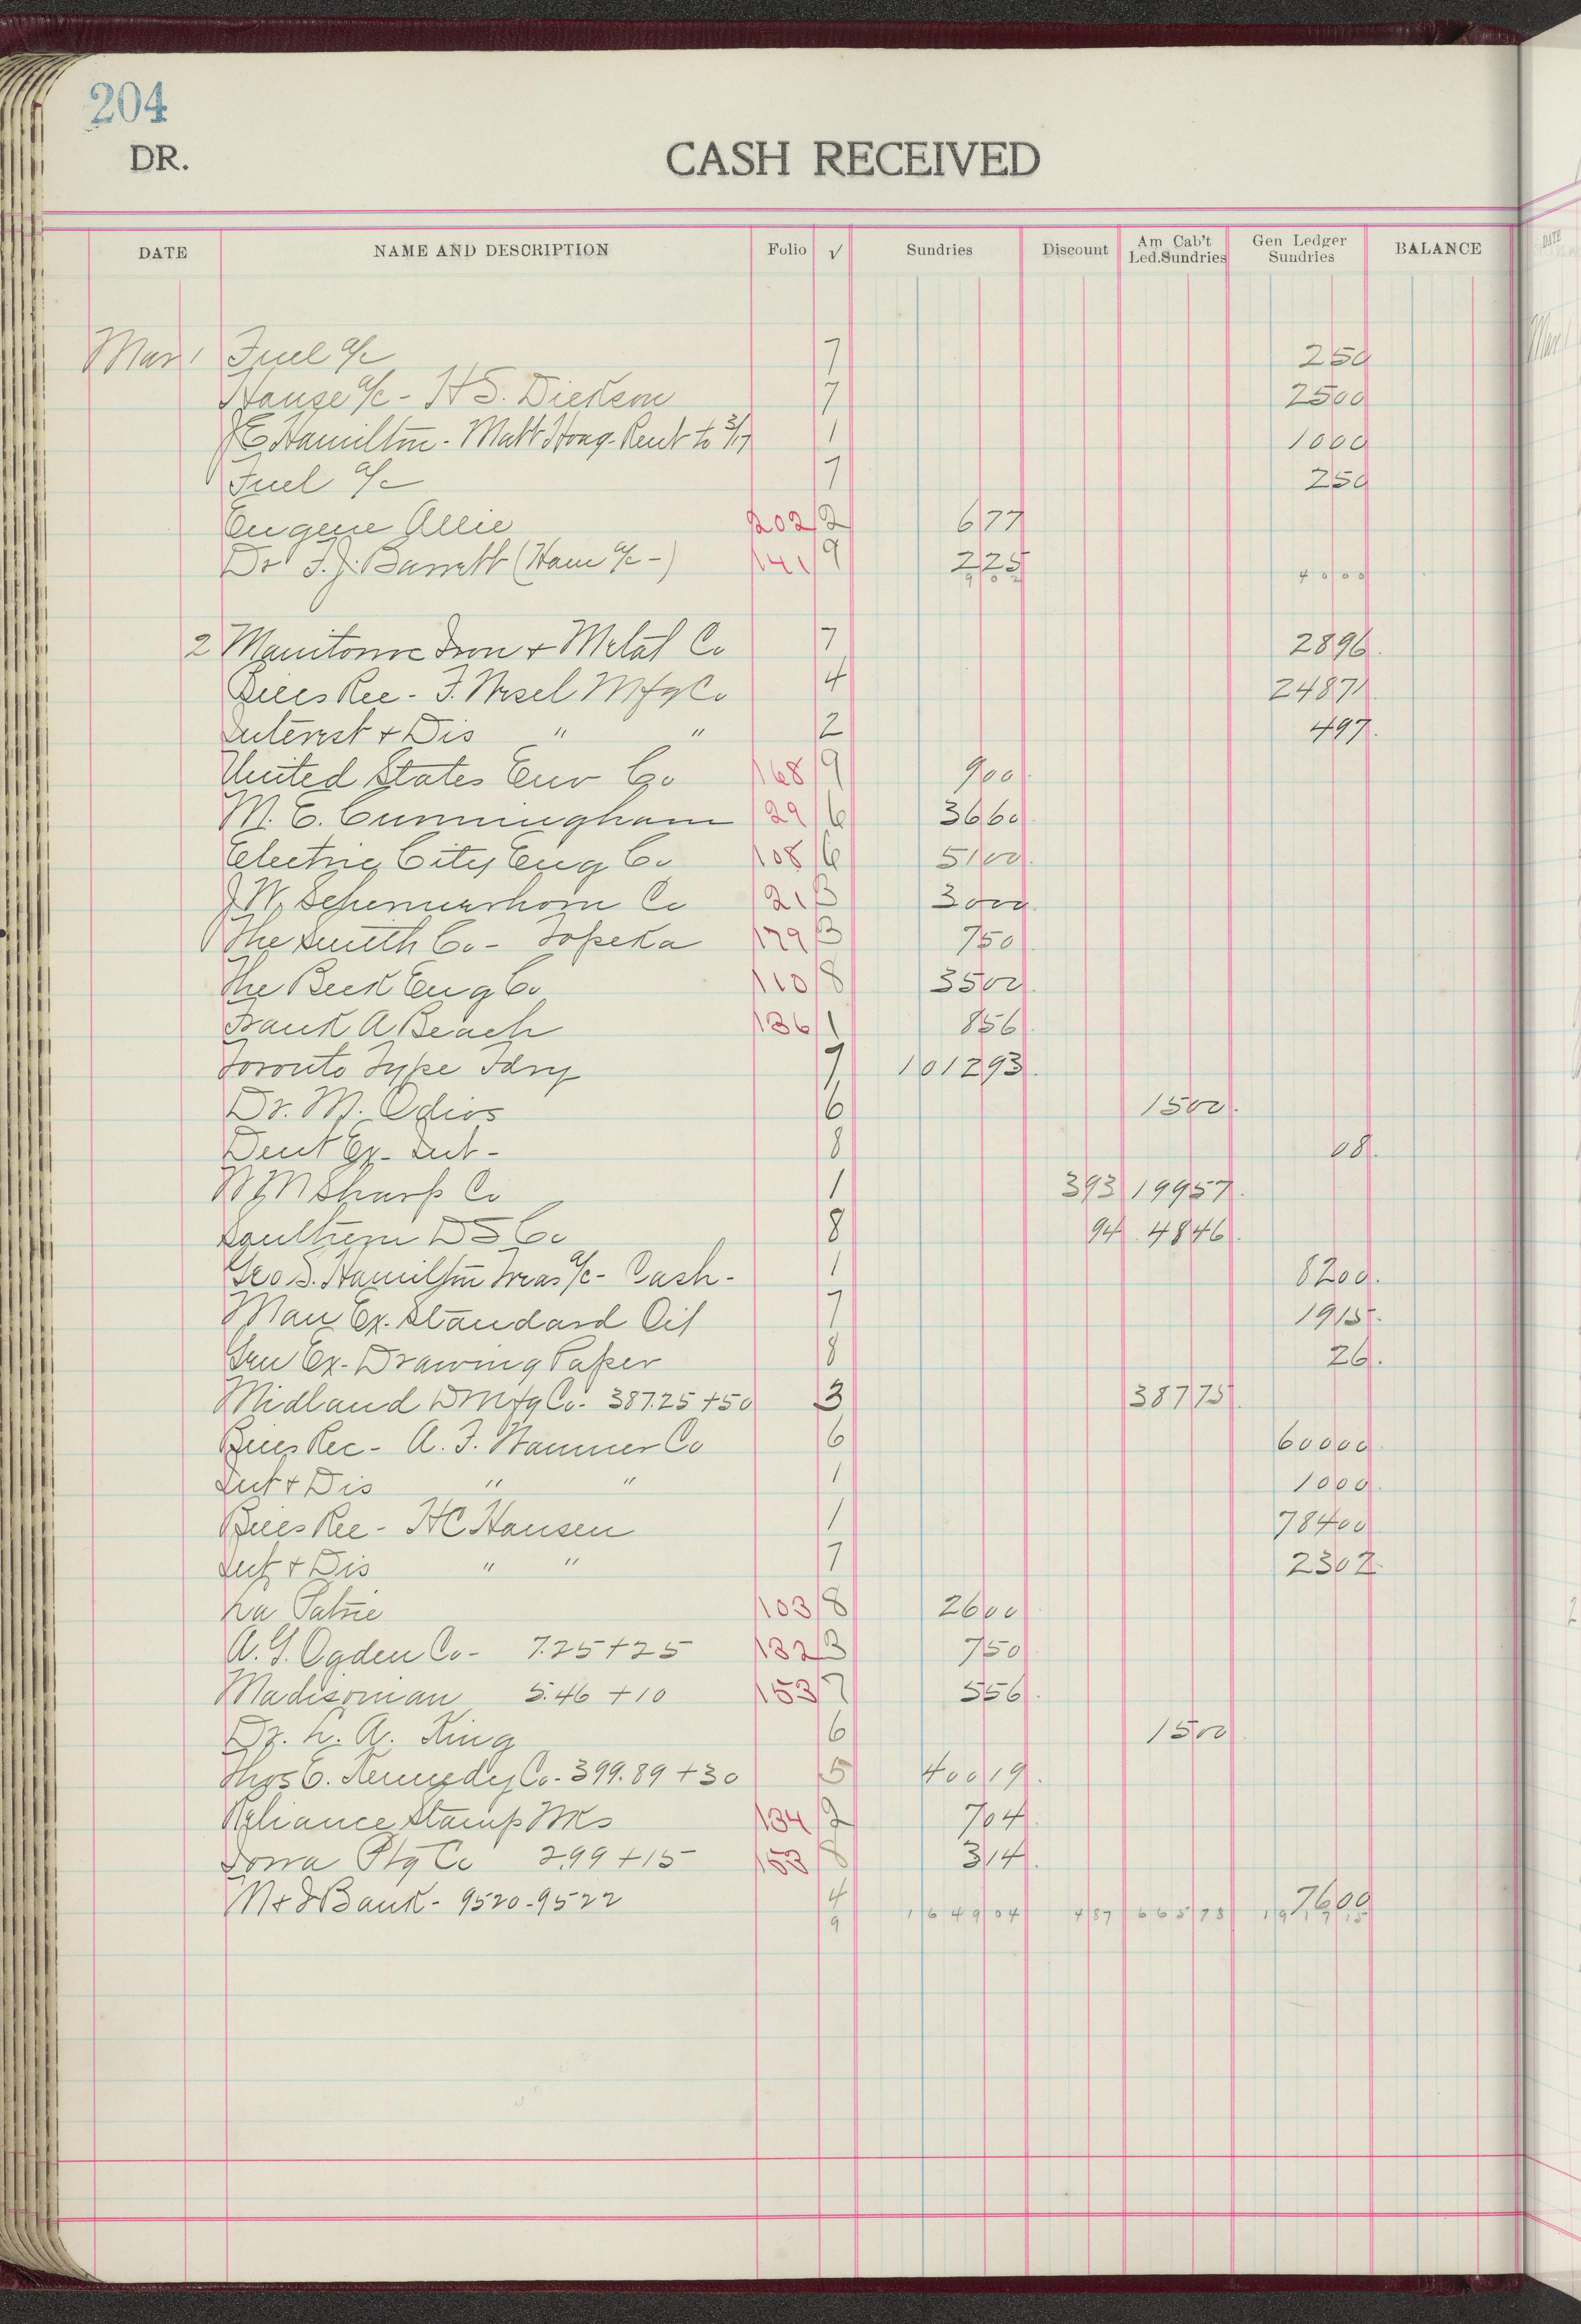 204
DR.
CASH RECEIVED
DATE NAME AND DESCRIPTION Folio √ Sundries Discount Am Cab't Led.Sundries Gen Ledger Sundries BALANCE
Mar 1 Fuel a/c 7 250
House a/c - H S. Dickson 7 2500
J E Hamilton - Matt Hoag - Rent to 3/17 1 1000
Fuel a/c 7 250
Eugene Allie 202 2 677
Dr F. J. Barrett (Ham a/c -) 141 9 225
902 4000
2 Manitowoc Iron + Metal Co 7 2896
Bills Rec - F. Wesel Mfg Co 4 24871
Interest + Dis " " 2 497
United States Env Co 168 9 900
M. E. Cunningham 29 6 3660
Electric City Eng Co 108 6 5100
J. W. Schermerhorn Co 21 3 3000
The Smith Co - Topeka 179 3 750
The Beck Eng Co 110 8 3500
Frank A Beach 136 1 856
Toronto Type Fdry 7 101293
Dr. M. 6 1500
Dent Ex - Int - 8 08
W M Sharp Co 1 393 19957
Southern D S Co 8 94 4846
Geo S. Hamilton Treas a/c - Cash - 1 8200
Man Ex. Standard Oil 7 1915
Gen Ex - Drawing Paper 8 26
Midland D Mfg Co - 387.25 + 50 3 38775
Bills Rec - A. F. Wanner Co 6 60000
Int + Dis " " 1 1000
Bills Rec - H C Hansen 1 78400
Int + Dis " " 7 2302
La Patrie 103 8 2600
A. G. Ogden Co - 7.25 + 25 132 3 750
Madisonian 5.46 + 10 153 7 556
Dr. L. A. King 6 1500
Thos E. Kennedy Co - 399.89 + 30 5 40019
Reliance Stamp Wks 134 2 704
Iowa Ptg Co 2.99 + 15 153 8 314
M + I Bank - 9520 - 9522 4 7600
9 164904 487 66578 191715